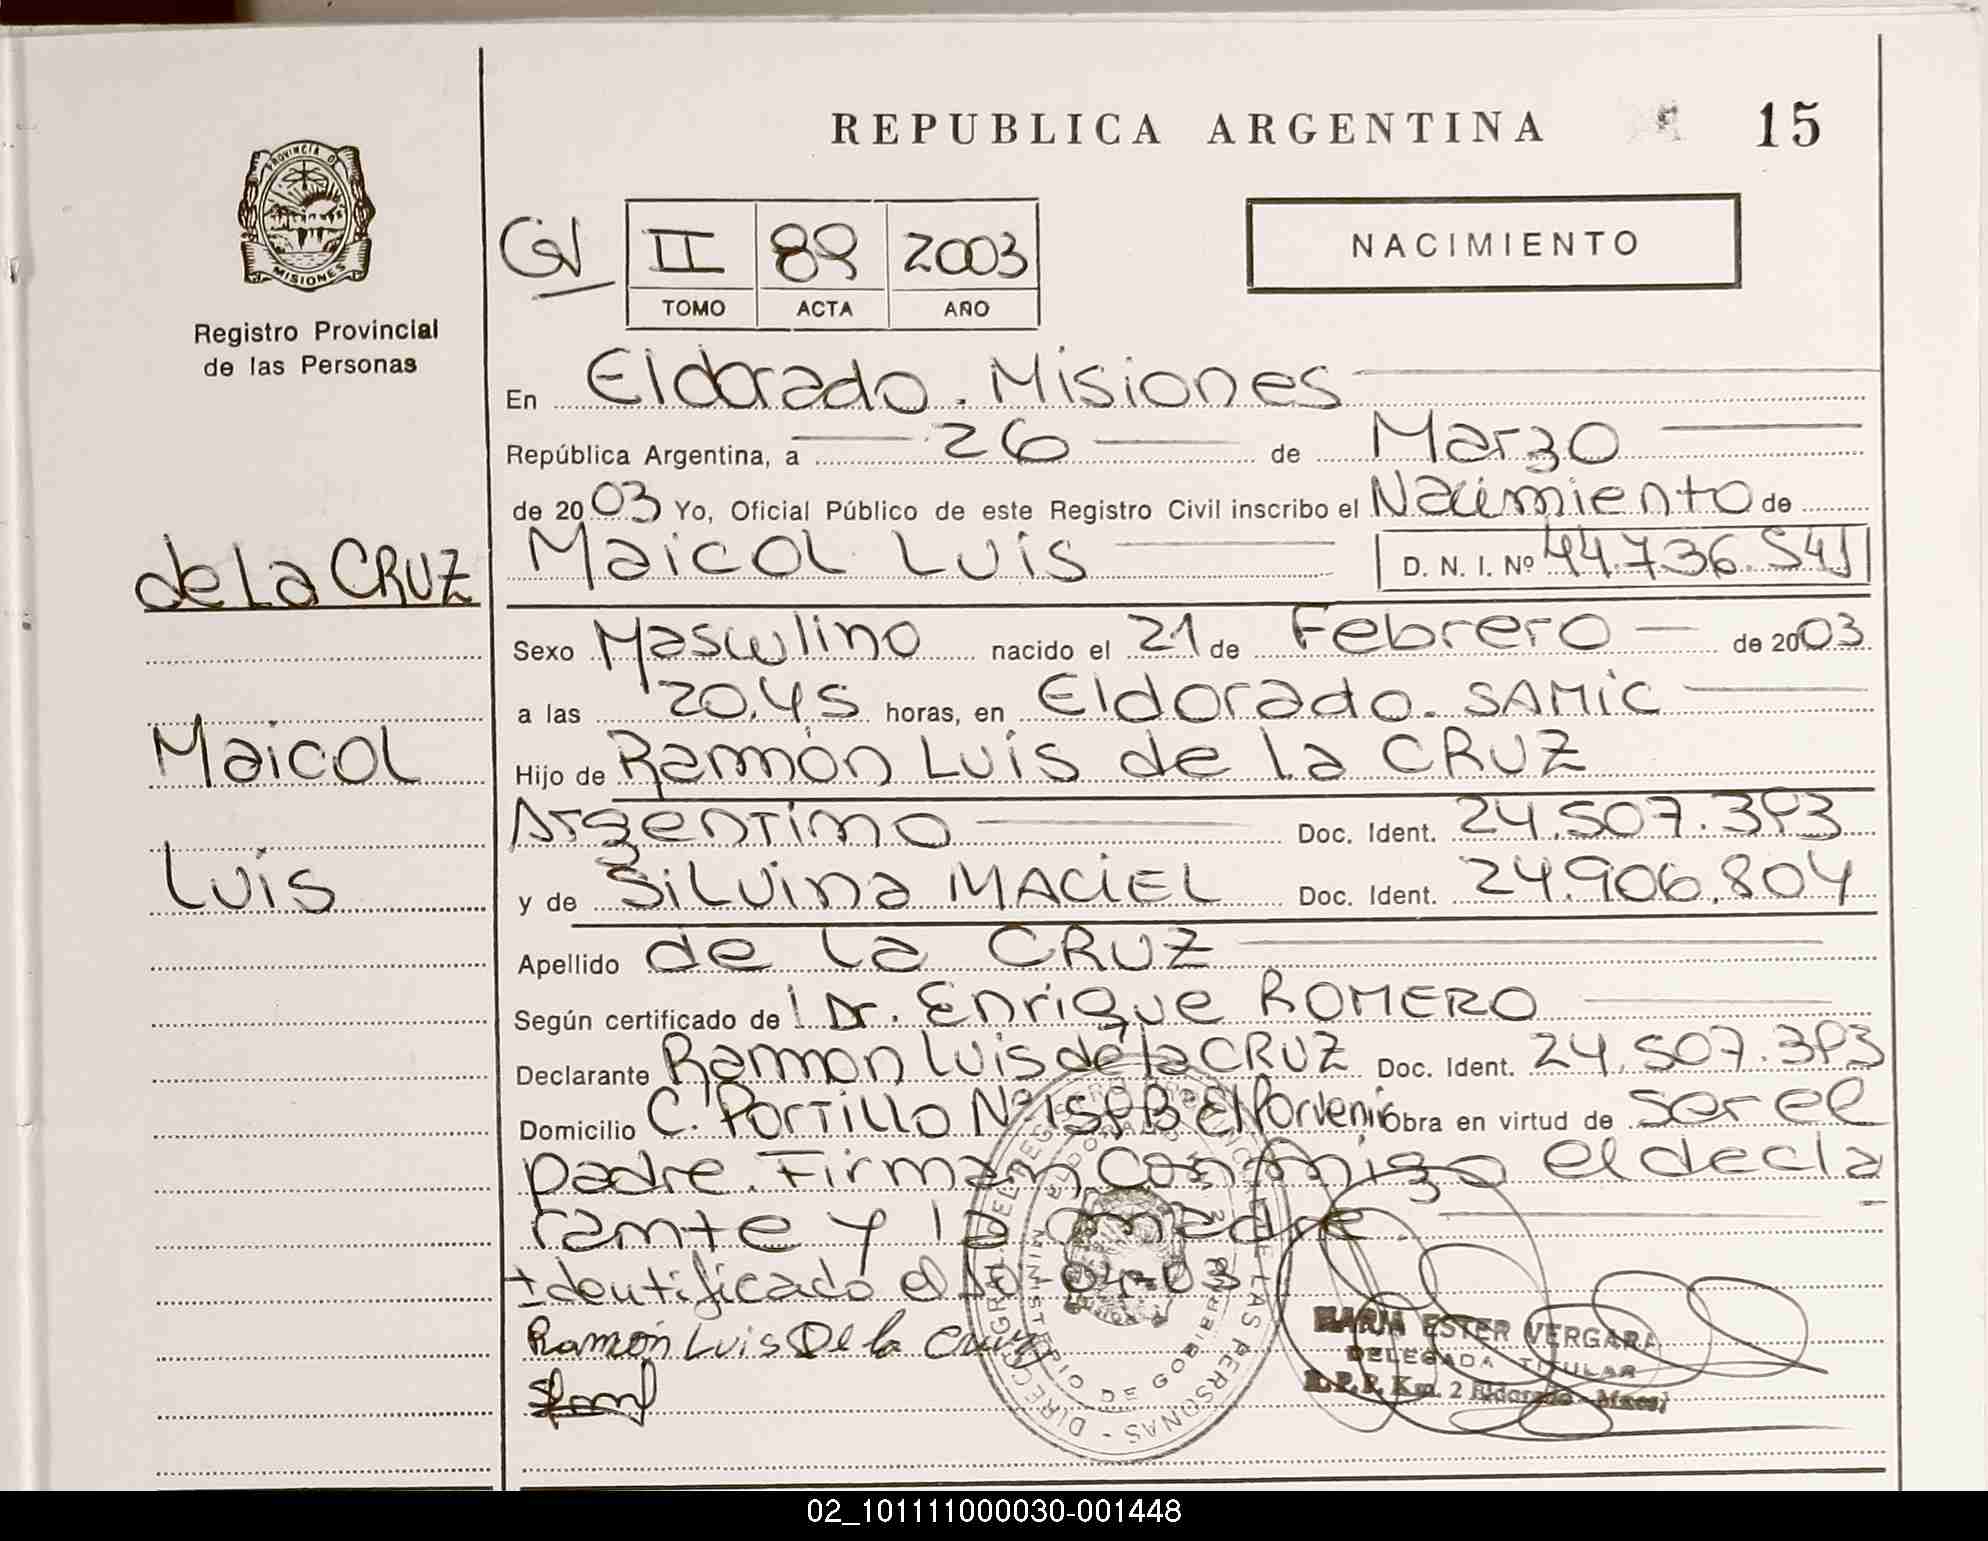 REPUBLICA ARGENTINA
15
PROVINCIA DE
MISIONES
Registro Provincial
de las Personas
GV
II 89 2003
TOMO ACTA AÑO
NACIMIENTO
En Eldorado. Misiones
República Argentina, a 26 de Marzo
de 2003 Yo, Oficial Público de este Registro Civil inscribo el Nacimiento de
de la CRUZ
Maicol Luis D. N. I. Nº 44.736.541
Sexo Masculino nacido el 21 de Febrero de 2003
a las 20,45 horas, en Eldorado. SAMIC
Maicol
Hijo de Ramón Luis de la CRUZ
Argentino Doc. Ident. 24.507.393
Luis
y de Silvina MACIEL Doc. Ident. 24.906.804
Apellido de la CRUZ
Según certificado de Dr. Enrique ROMERO
Declarante Ramon Luis de la CRUZ Doc. Ident. 24.507.393
Domicilio C. Portillo Nº El Porvenir Obra en virtud de ser el
padre. Firman conmigo el decla
rante y la madre.
Identificado el 10 04-03
Ramón Luis De la Cruz
MARIA ESTER VERGARA
DELEGADA TITULAR
R.P.P. Km. 2 Eldorado - Mnes.
DIRECC. GRAL. DEL REGISTRO PROVINCIAL DE LAS PERSONAS
MINISTERIO DE GOBIERNO
ELDORADO
02_101111000030-001448